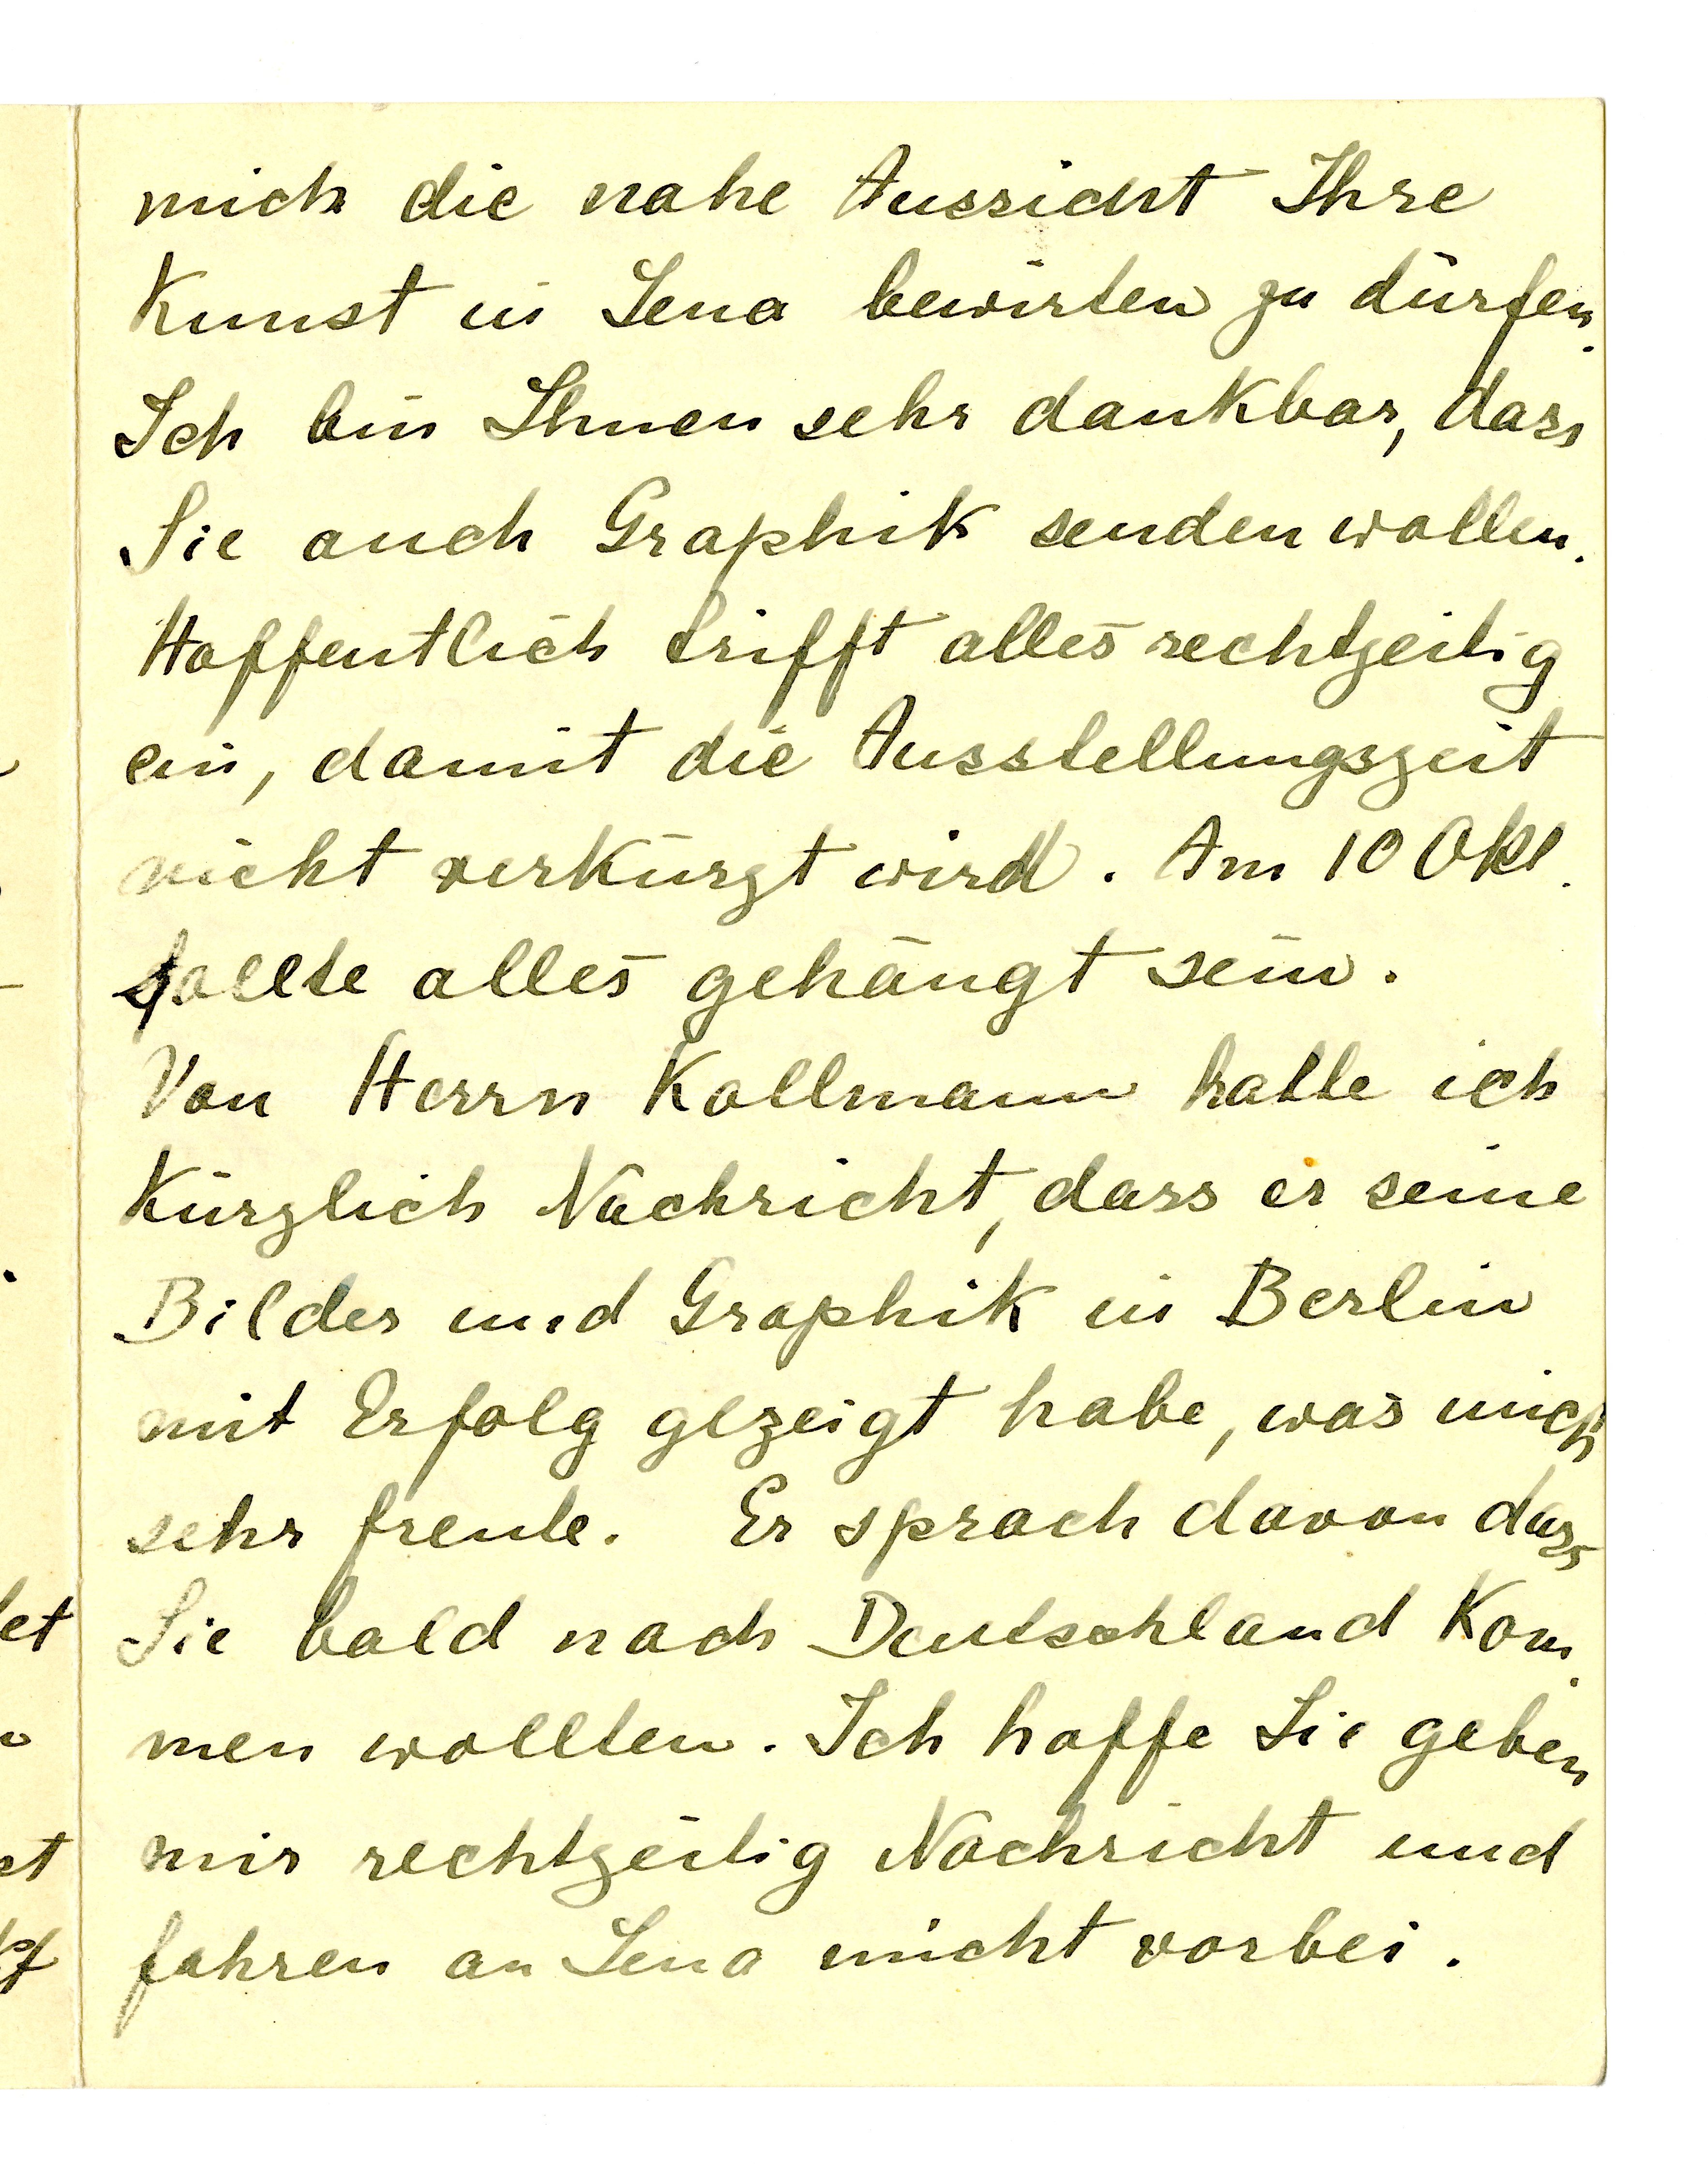 mich die nahe Aussicht Ihre
Kunst in Jena bewirten zu dürfen.
Ich bin Ihnen sehr dankbar, dass
Sie auch Graphik senden wollen.
Hoffentlich trifft alles rechtzeitig
ein, damit die Ausstellungszeit
nicht verkürzt wird. Am 10 Okt.
sollte alles gehängt sein.
Von Herrn Kollmann hatte ich
kürzlich Nachricht, dass er seine
Bilder und Graphik in Berlin
mit Erfolg gezeigt habe, was mich
sehr freute. Er sprach davon dass
Sie bald nach Deutschland kom
men wollten. Ich hoffe Sie geben
mir rechtzeitig Nachricht und
fahren an Jena nicht vorbei.